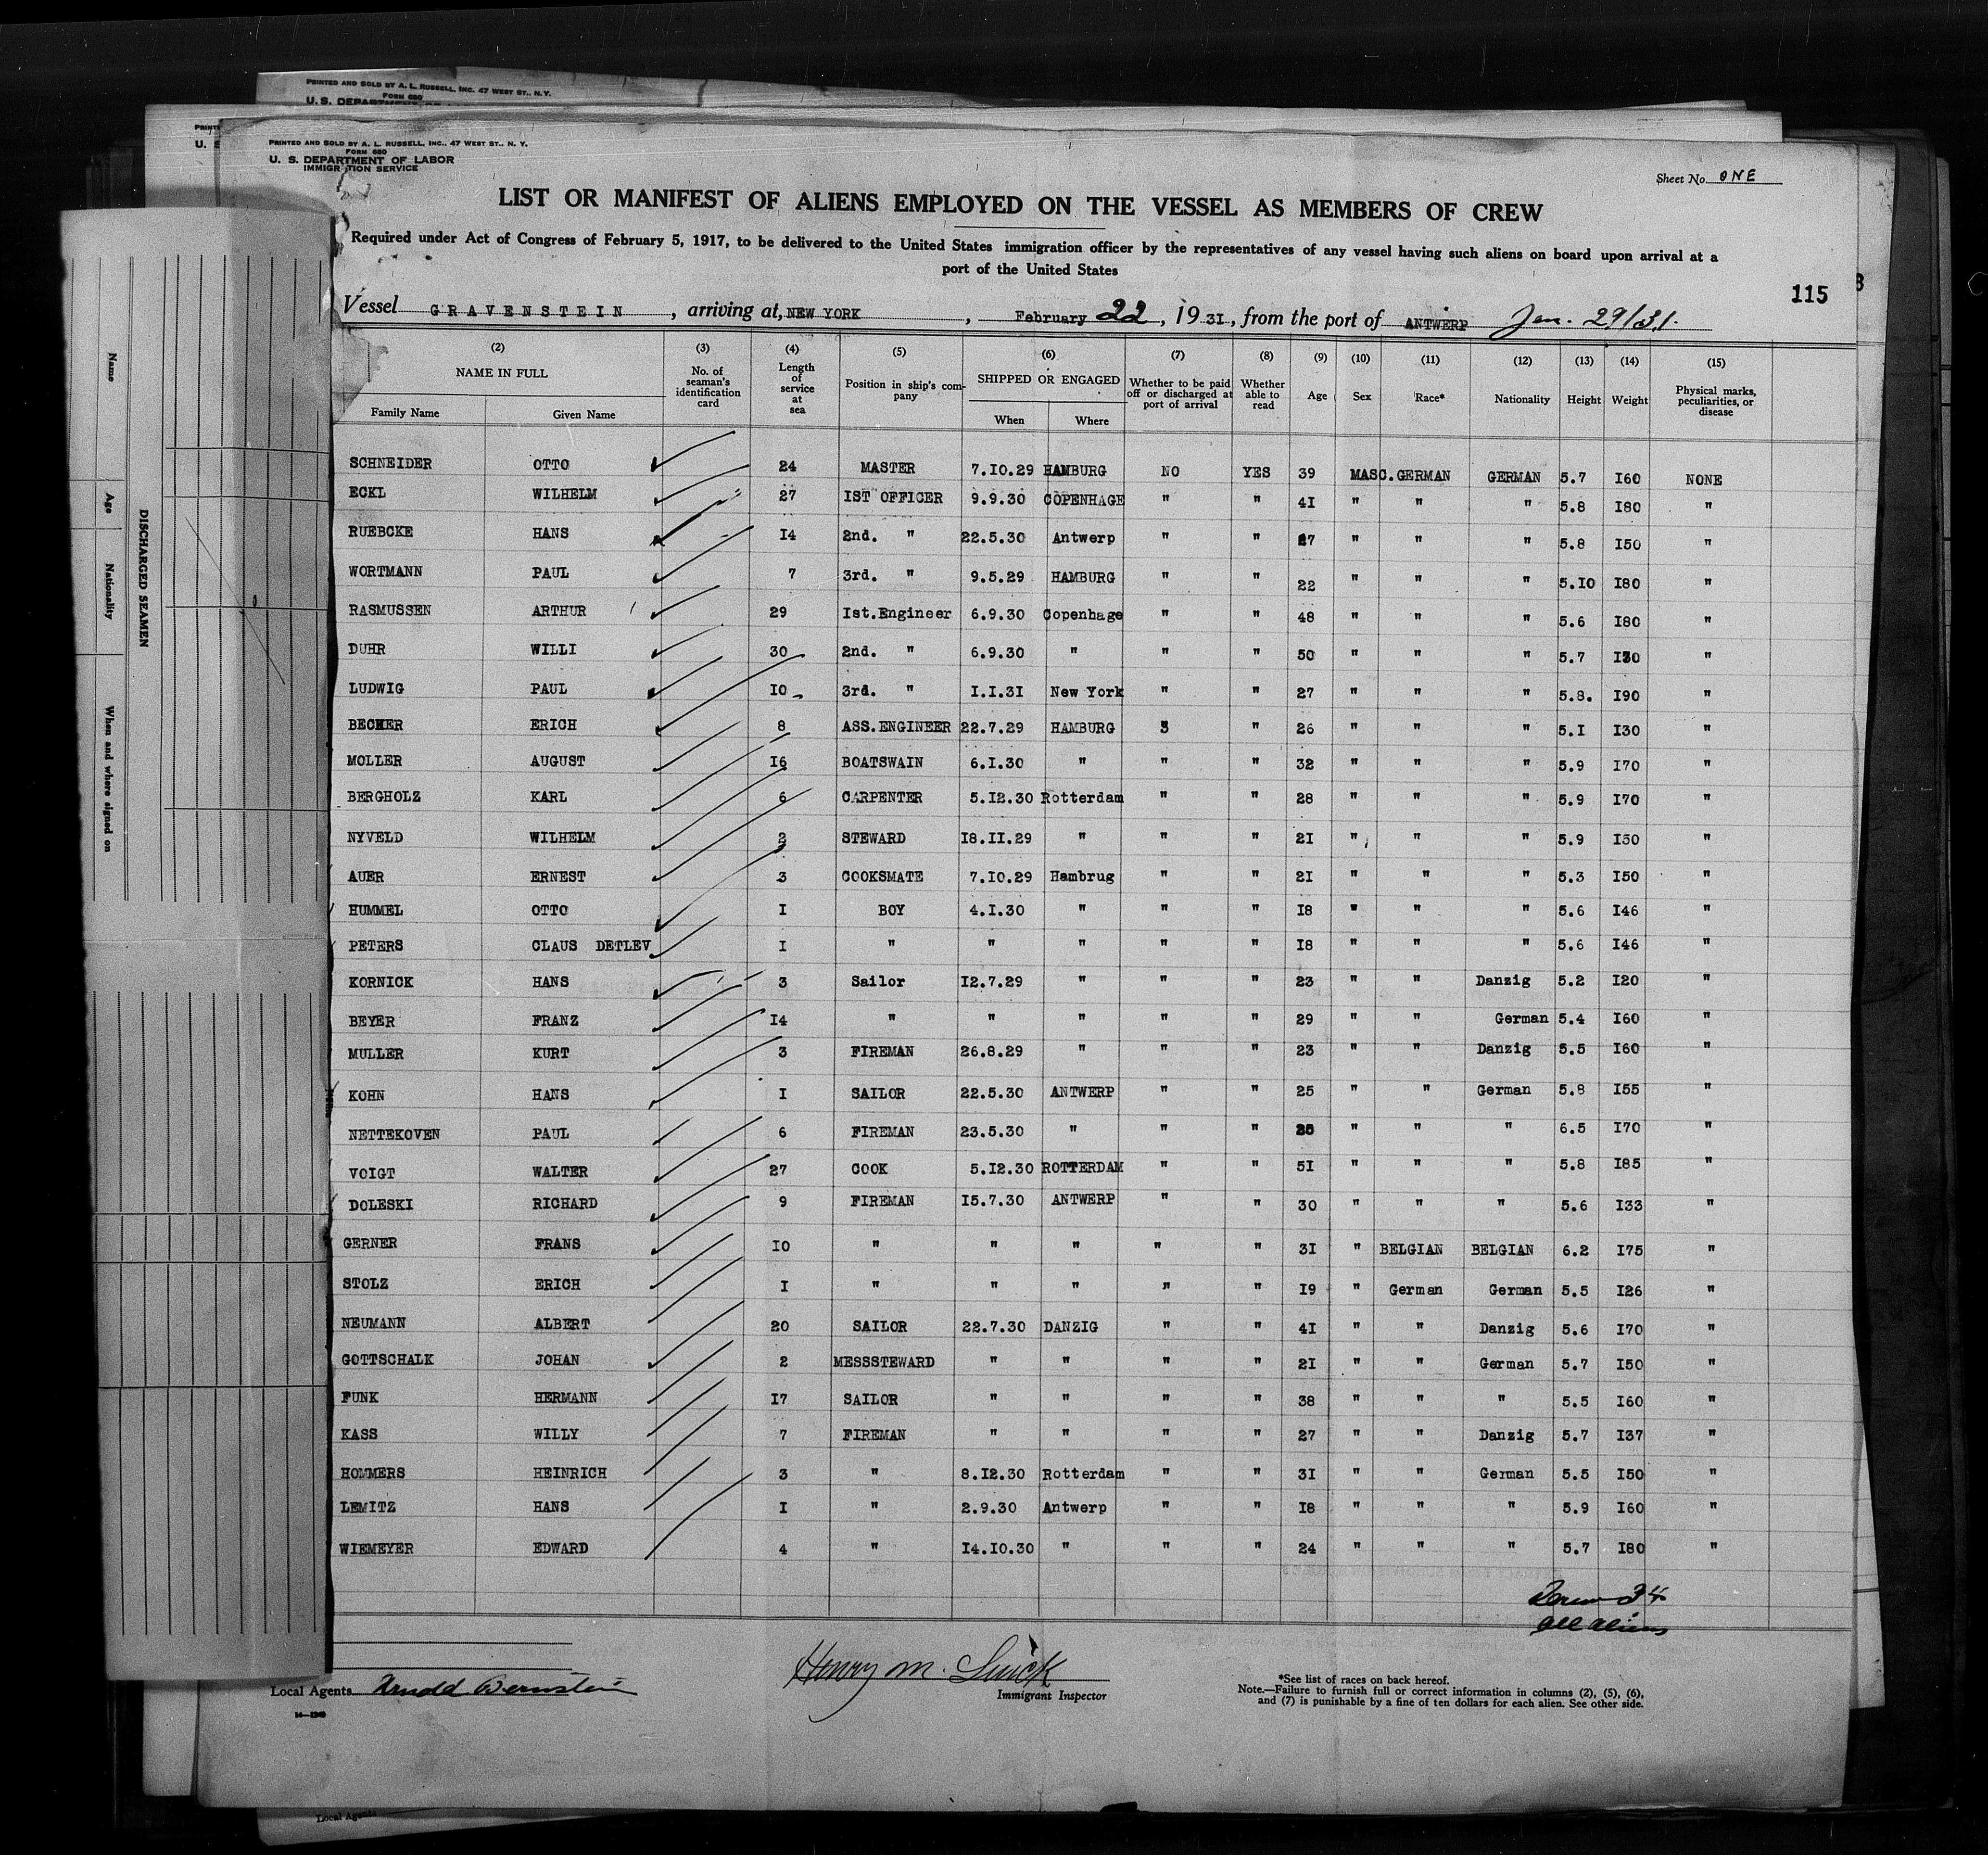 PRINTED AND SOLD BY A. L. RUSSELL, INC. 47 WEST ST., N.Y.
FORM 680
U. S. DEPARTMENT OF
PRINTED AND SOLD BY A. L. RUSSELL, INC., 47 WEST ST., N. Y.
FORM 680
U. S. DEPARTMENT OF LABOR
IMMIGRATION SERVICE
Sheet No. ONE
LIST OR MANIFEST OF ALIENS EMPLOYED ON THE VESSEL AS MEMBERS OF CREW
Required under Act of Congress of February 5, 1917, to be delivered to the United States immigration officer by the representatives of any vessel having such aliens on board upon arrival at a
port of the United States
115
Vessel GRAVENSTEIN, arriving at, NEW YORK, February 22, 1931, from the port of ANTWERP Jan. 29/31.
(2) (3) (4) (5) (6) (7) (8) (9) (10) (11) (12) (13) (14) (15)
NAME IN FULL No. of seaman's identification card Length of service at sea Position in ship's company SHIPPED OR ENGAGED Whether to be paid off or discharged at port of arrival Whether able to read Age Sex Race* Nationality Height Weight Physical marks, peculiarities, or disease
Family Name Given Name When Where
SCHNEIDER OTTO 24 MASTER 7.10.29 HAMBURG NO YES 39 MASC. GERMAN GERMAN 5.7 160 NONE
ECKL WILHELM 27 IST OFFICER 9.9.30 COPENHAGE " " 41 " " " 5.8 180 "
RUEBCKE HANS 14 2nd. " 22.5.30 Antwerp " " 27 " " " 5.8 150 "
WORTMANN PAUL 7 3rd. " 9.5.29 HAMBURG " " 22 " " " 5.10 180 "
RASMUSSEN ARTHUR 29 Ist.Engineer 6.9.30 Copenhage " " 48 " " " 5.6 180 "
DUHR WILLI 30 2nd. " 6.9.30 " " " 50 " " " 5.7 130 "
LUDWIG PAUL 10 3rd. " 1.1.31 New York " " 27 " " " 5.8. 190 "
BECKER ERICH 8 ASS.ENGINEER 22.7.29 HAMBURG " " 26 " " " 5.1 130 "
MOLLER AUGUST 16 BOATSWAIN 6.1.30 " " " 32 " " " 5.9 170 "
BERGHOLZ KARL 6 CARPENTER 5.12.30 Rotterdam " " 28 " " " 5.9 170 "
NYVELD WILHELM 2 STEWARD 18.11.29 " " " 21 " " " 5.9 150 "
AUER ERNEST 3 COOKSMATE 7.10.29 Hambrug " " 21 " " " 5.3 150 "
HUMMEL OTTO 1 BOY 4.1.30 " " " 18 " " " 5.6 146 "
PETERS CLAUS DETLEV 1 " " " " " 18 " " " 5.6 146 "
KORNICK HANS 3 Sailor 12.7.29 " " " 23 " " Danzig 5.2 120 "
BEYER FRANZ 14 " " " " " 29 " " German 5.4 160 "
MULLER KURT 3 FIREMAN 26.8.29 " " " 23 " " Danzig 5.5 160 "
KOHN HANS 1 SAILOR 22.5.30 ANTWERP " " 25 " " German 5.8 155 "
NETTEKOVEN PAUL 6 FIREMAN 23.5.30 " " " " " " 6.5 170 "
VOIGT WALTER 27 COOK 5.12.30 ROTTERDAM " " 51 " " " 5.8 185 "
DOLESKI RICHARD 9 FIREMAN 15.7.30 ANTWERP " " 30 " " " 5.6 133 "
GERNER FRANS 10 " " " " " 31 " BELGIAN BELGIAN 6.2 175 "
STOLZ ERICH 1 " " " " " 19 " German German 5.5 126 "
NEUMANN ALBERT 20 SAILOR 22.7.30 DANZIG " " 41 " " Danzig 5.6 170 "
GOTTSCHALK JOHAN 2 MESSSTEWARD " " " " 21 " " German 5.7 150 "
FUNK HERMANN 17 SAILOR " " " " 38 " " " 5.5 160 "
KASS WILLY 7 FIREMAN " " " " 27 " " Danzig 5.7 137 "
HOMMERS HEINRICH 3 " 8.12.30 Rotterdam " " 31 " " German 5.5 150 "
LEMITZ HANS 1 " 2.9.30 Antwerp " " 18 " " " 5.9 160 "
WIEMEYER EDWARD 4 " 14.10.30 " " " 24 " " " 5.7 180 "
34
all aliens
Local Agents Arnold Bernstein
Henry M.
Immigrant Inspector
*See list of races on back hereof.
Note.—Failure to furnish full or correct information in columns (2), (5), (6),
and (7) is punishable by a fine of ten dollars for each alien. See other side.
Name
Age
Nationality
When and where signed on
DISCHARGED SEAMEN
Local Agents